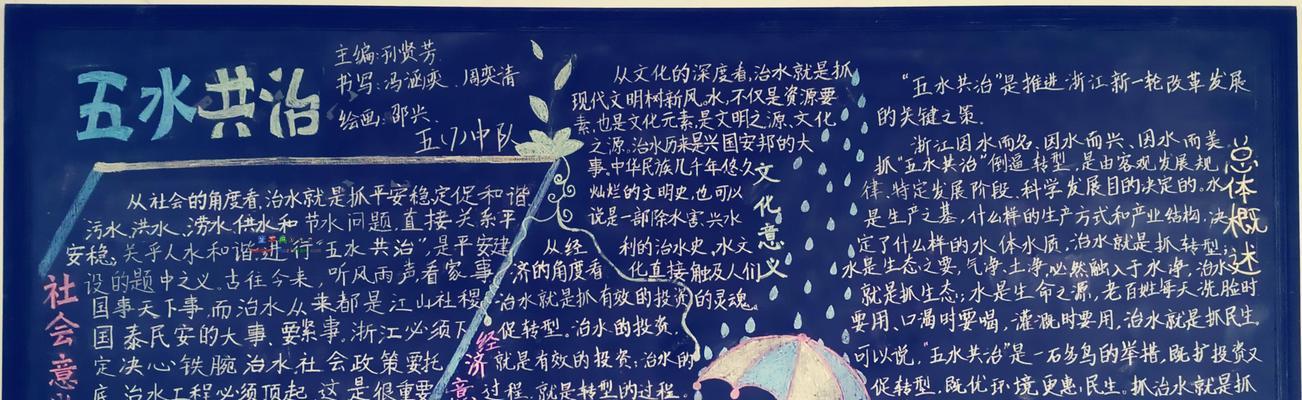 五水共治
主编:孙贤芳
书写:冯涵奕、周奕清
绘画:邵兴
五(7)中队
从社会的角度看,治水就是抓平安稳定促和谐
污水、洪水、涝水、供水和节水问题,直接关系平
安稳,关乎人水和谐进行“五水共治”,是平安建
设的题中之义。古往今来,听风雨声,看家事
国事天下事,而治水从来都是江山社稷
国泰民安的大事、要紧事。浙江必须下
定决心铁腕治水社会政策要托
底治水工程必须顶起,这是很重要
社会意
从经
济的角度看
治水就是抓有效的投资
促转型。治水的投资,
就是有效的投资;治水的
过程,就是转型的过程。
经济意
从文化的深度看,治水就是抓
现代文明树新风。水,不仅是资源要
素,也是文化元素,是文明之源、文化
之源。治水历来是兴国安邦的大
事。中华民族几千年悠久
灿烂的文明史,也可以
说是一部除水害、兴水
利的治水史,水文
化直接触及人们
的灵魂。
文化意义
“五水共治”是推进浙江新一轮改革发展
的关键之策。
浙江因水而名、因水而兴、因水而美。
抓“五水共治”倒逼转型,是由客观发展规
律、特定发展阶段、科学发展目的决定的。水
是生产之基,什么样的生产方式和产业结构,决
定了什么样的水体水质,治水就是抓转型;
水是生态之要,气净、土净,必然融入于水净,治水
就是抓生态;水是生命之源,老百姓每天洗脸时
要用、口渴时要喝,灌溉时要用,治水就是抓民生。
可以说,“五水共治”是一石多鸟的举措,既扩投资又
促转型,既优环境更惠民生。抓治水就是抓
总体概述